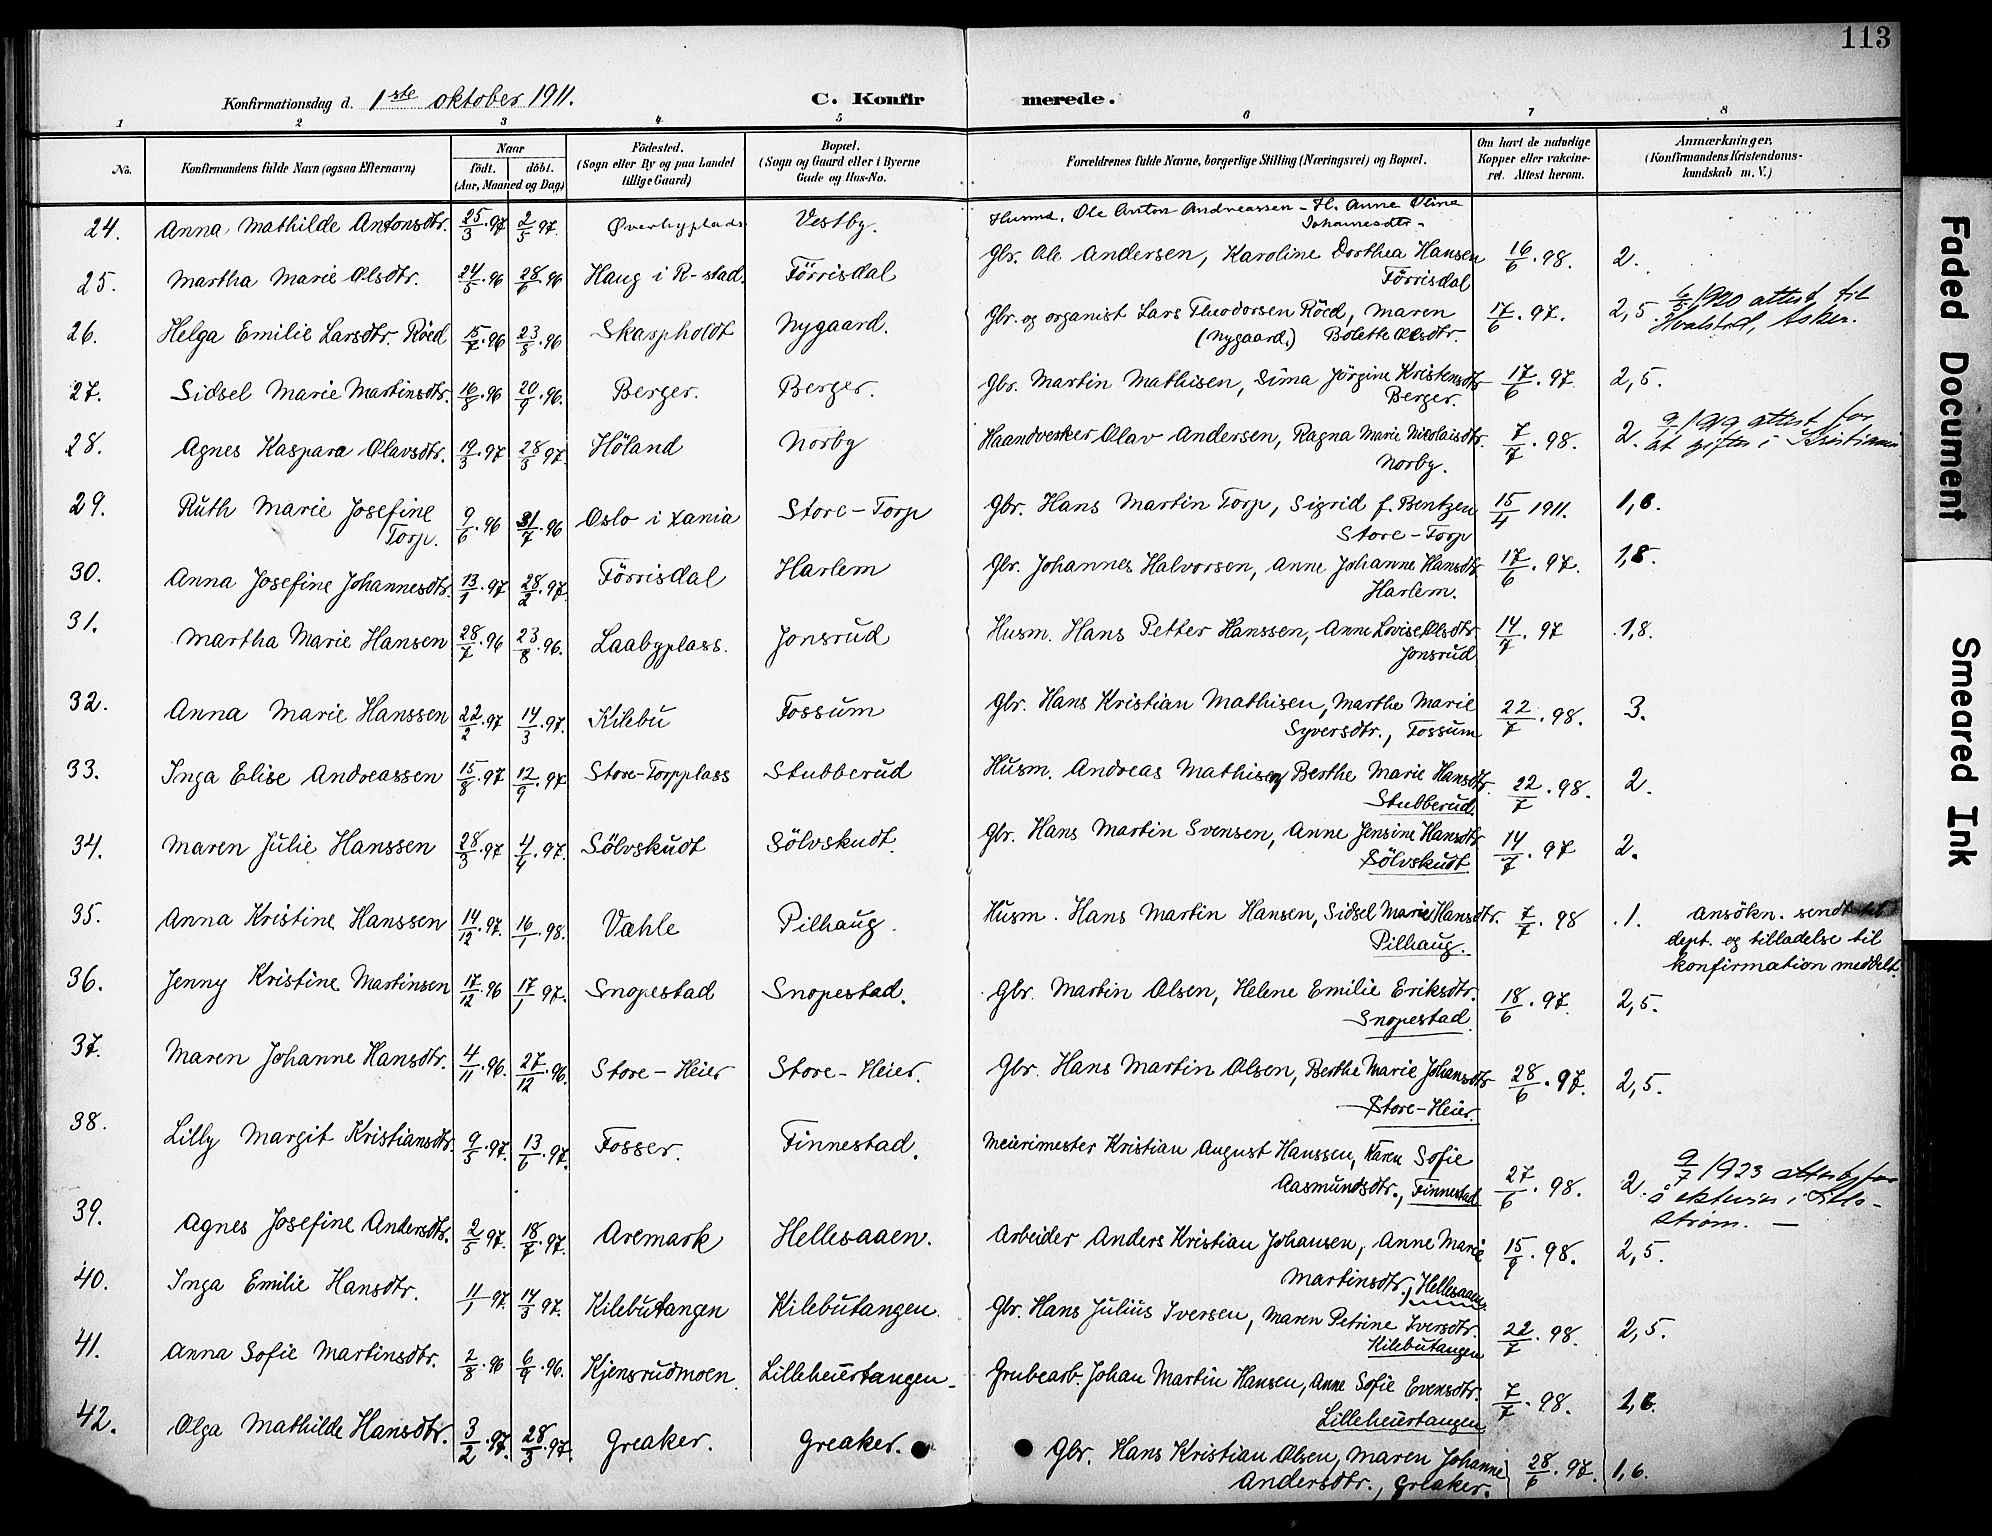 113
Konfirmationsdag d. 1ste oktober 1911.
C. Konfirmerede.
1 2 3 4 5 6 7 8
No.
Konfirmandens fulde Navn (ogsaa Efternavn)
Naar
födt. döbt.
(Aar, Maaned og Dag)
Födested.
(Sogn eller By og paa Landet
tillige Gaard)
Bopæl.
(Sogn og Gaard eller i Byerne
Gade og Hus-No.
Forældrenes fulde Navne, borgerlige Stilling (Næringsvei) og Bopæl.
Om havt de naturlige
Kopper eller vakcine-
ret. Attest herom.
Anmærkninger,
(Konfirmandens Kristendoms-
kundskab m. V.)
24. Anna Mathilde Antonsdtr. 25/3.97 2/5 97. Øverbyplads Vestby. Husmd. Ole Anton Andreassen - H. Anne Oline
Johannesdtr.
25. Martha Marie Olsdtr. 24/5.96 28/6.96 Haug i R-stad. Förrisdal Gbr. Ole Andersen, Karoline Dorthea Hansen 16/6.98. 2.
Förrisdal
26. Helga Emilie Larsdtr. Röed 15/7.96 23/8.96 Skaspholdt Nygaard. Gbr. og organist Lars Theodorsen Röed, Maren 17/6.97. 2,5. 6/5 1920 attest til
(Nygaard.) Bolette Olsdtr. Hvalstad, Asker.
27. Sidsel Marie Martinsdtr. 16/8.96 20/9.96. Berger. Berger. Gbr. Martin Mathisen, Sima Jörgine Kristensdtr 17/6.97. 2,5.
Berger.
28. Agnes Kaspara Olavsdtr. 19/3.97 28/5 97. Höland Norby Haandverker Olav Andersen, Ragna Marie Nicolaisdtr. 7/7.98. 2. 9/1919 attest for
Norby. at giftes i Kristiania
29. Ruth Marie Josefine
Torp. 9/6.96 31/7.96 Oslo i Xania Store-Torp Gbr. Hans Martin Torp, Sigrid f. Bentzen 15/4 1911. 1,6.
Store-Torp
30. Anna Josefine Johannesdtr. 13/1.97 28/2.97. Förrisdal Harlem Gbr. Johannes Halvorsen, Anne Johanne Hansdtr 17/6.97. 1,8.
Harlem.
31. Martha Marie Hansen 28/7.96 23/8.96. Laabyplass. Jonsrud Husm. Hans Petter Hanssen, Anne Lovise Olsdtr 14/7.97 1,8.
Jonsrud
32. Anna Marie Hanssen 22/2.97 14/3.97. Kilebu Fossum Gbr. Hans Kristian Mathisen, Marthe Marie 22/7.98. 3.
Syversdtr., Fossum
33. Inga Elise Andreassen 15/8.97 12/9.97 Store-Torpplass Stubberud Husm. Andreas Mathisen, Berthe Marie Hansdtr. 22/7.98. 2.
Stubberud.
34. Maren Julie Hanssen 28/3.97 4/4.97. Sölvskudt Sölvskudt. Gbr. Hans Martin Svensen, Anne Jensine Hansdtr. 14/7.97 2.
Sölvskudt.
35. Anna Kristine Hanssen 14/12.97. 16/1.98. Væhle Pilhaug. Husm. Hans Martin Hansen, Sidsel Marie Hansdtr. 7/7.98 1. ansökn. sendt til
Pilhaug. dept. og tilladelse til
konfirmation meddelt.
36. Jenny Kristine Martinsen 17/12.96 17/1 97. Snopestad Snopestad. Gbr. Martin Olsen, Helene Emilie Eriksdtr. 18/6.97. 2,5.
Snopestad
37. Maren Johanne Hansdtr. 4/11.96. 27/12.96. Store-Heier Store-Heier. Gbr. Hans Martin Olsen, Berthe Marie Johansdtr 28/6.97. 2,5.
Store-Heier
38. Lilly Margit Kristiansdtr. 9/5.97. 13/6.97. Fosser. Finnestad. Meierimester Kristian August Hanssen, Karen Sofie
Aasmundsdtr., Finnestad 27/6.98. 2. 9/7 1923 attest for
å ektevies i Lille-
strøm. —
39. Agnes Josefine Andersdtr. 2/5 97. 18/7.97. Aremark Hellesaaen. Arbeider Anders Kristian Johansen, Anne Marie 15/9.98. 2,5.
Martinsdtr., Hellesaaen
40. Inga Emilie Hansdtr. 11/1 97. 14/3 97. Kilebutangen Kilebutangen. Gbr. Hans Julius Iversen, Maren Petrine Iversdtr. 22/7.98. 2,5.
Kilebutangen
41. Anna Sofie Martinsdtr. 2/8.96 6/9.96. Kjensrudmoen Lilleheiertangen Grubearb. Johan Martin Hansen, Anne Sofie Evensdtr. 7/7.98. 1,6.
Lilleheiertangen
42. Olga Mathilde Hansdtr. 3/2.97. 28/3 97. Greaker. Greaker. Gbr. Hans Kristian Olsen, Maren Johanne 28/6.97. 1,6.
Andersdtr., Greaker.
Faded Document
Smeared Ink